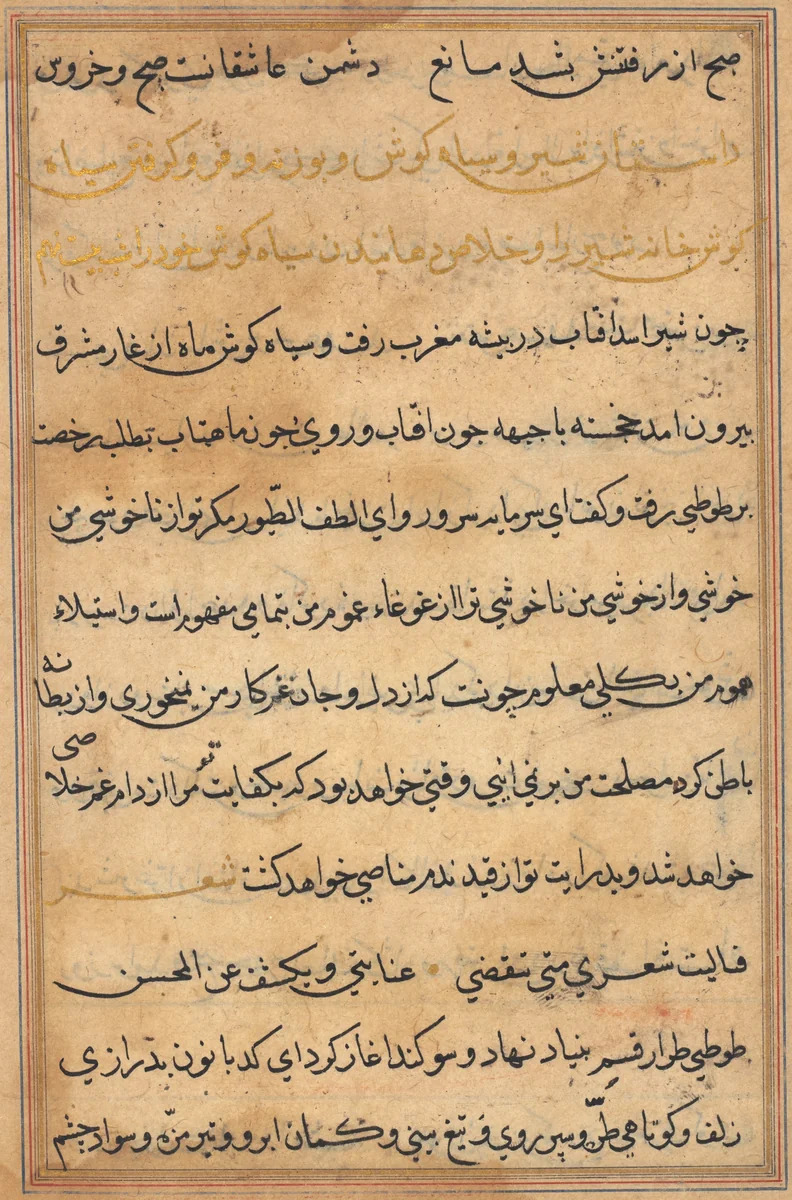 صبح از رفتنش بشد مانع دشمن عاشقانست صبح و خروس
داستان شیر و سیاه کوش و بوزنه و فرو کرفتن سیاه
کوش خانه شیر را و خلاص دهانیدن سیاه کوش خود را شب بیست نهم
چون شیر اسد افتاب در بیشه مغرب رفت و سیاه کوش ماه از غار مشرق
بیرون امد خجسته با جبهه جون افتاب و روی جون ماهتاب بطلب رخصت
بر طوطی رفت و کفت ای سرمایه سرور و ای الطف الطّیور مکر تو از ناخوشی من
خوشی و از خوشی من ناخوشی ترا از غوغاء غموم من بتمامی مفهوم است و استیلاء
هموم من بکلی معلوم چونست که از دل و جان غم کار من نمیخوری و از بطانه
باطن کره مصلحت من بر نمی اری وقتی خواهد بود که بکفایت تو مرا از دام غم خلاصی
خواهد شد و بدرایت تو از قید ندم مناصی خواهد کشت شعر
فالیت شعری متی تنقضی عنایتی ویکشف عن المحسن
طوطی طرار قسم بنیاد نهاد و سوکند اغاز کرد ای کدبانون بدرازی
زلف و کوتاهی طرّه و سپر روی و تیغ بینی و کمان ابرو و تیر مژّه و سواد چشم